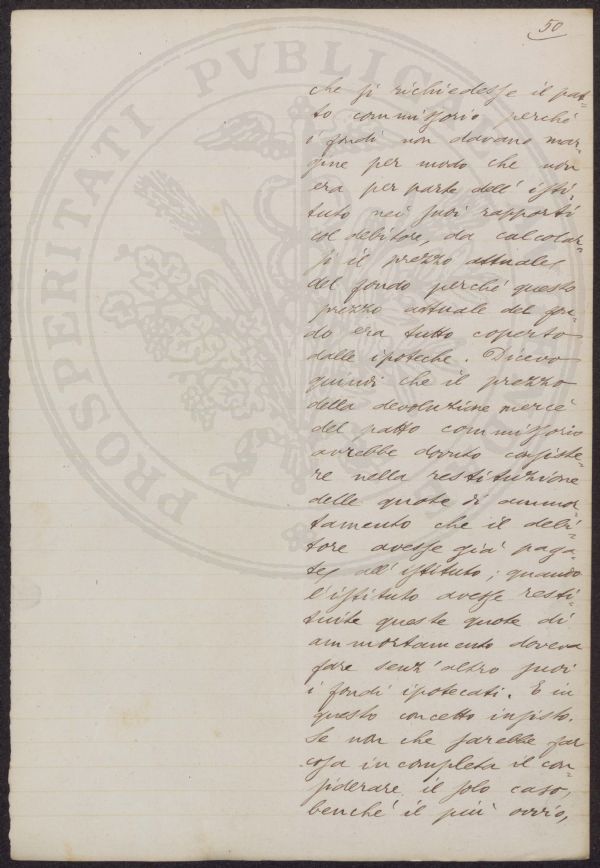 50
che si richiedesse il pat-
to commissorio perché
i fondi non davano mar-
gine per modo che non
era per parte dell'isti-
tuto nei suoi rapporti
col debitore, da calcolar-
si il prezzo attuale
del fondo perché questo
prezzo attuale del fon-
do era tutto coperto
dalle ipoteche. Dicevo
quindi che il prezzo
della devoluzione mercé
del patto commissorio
avrebbe dovuto consiste-
re nella restituzione
delle quote di ammor-
tamento che il debi-
tore avesse già paga-
te all'istituto; quando
l'istituto avesse resti-
tuite queste quote di
ammortamento doveva
fare senz'altro suoi
i fondi ipotecati. E in
questo concetto insisto.
Se non che sarebbe far
cosa incompleta il con-
siderare il solo caso,
benché il più ovvio,
PROSPERITATI PVBLICAE